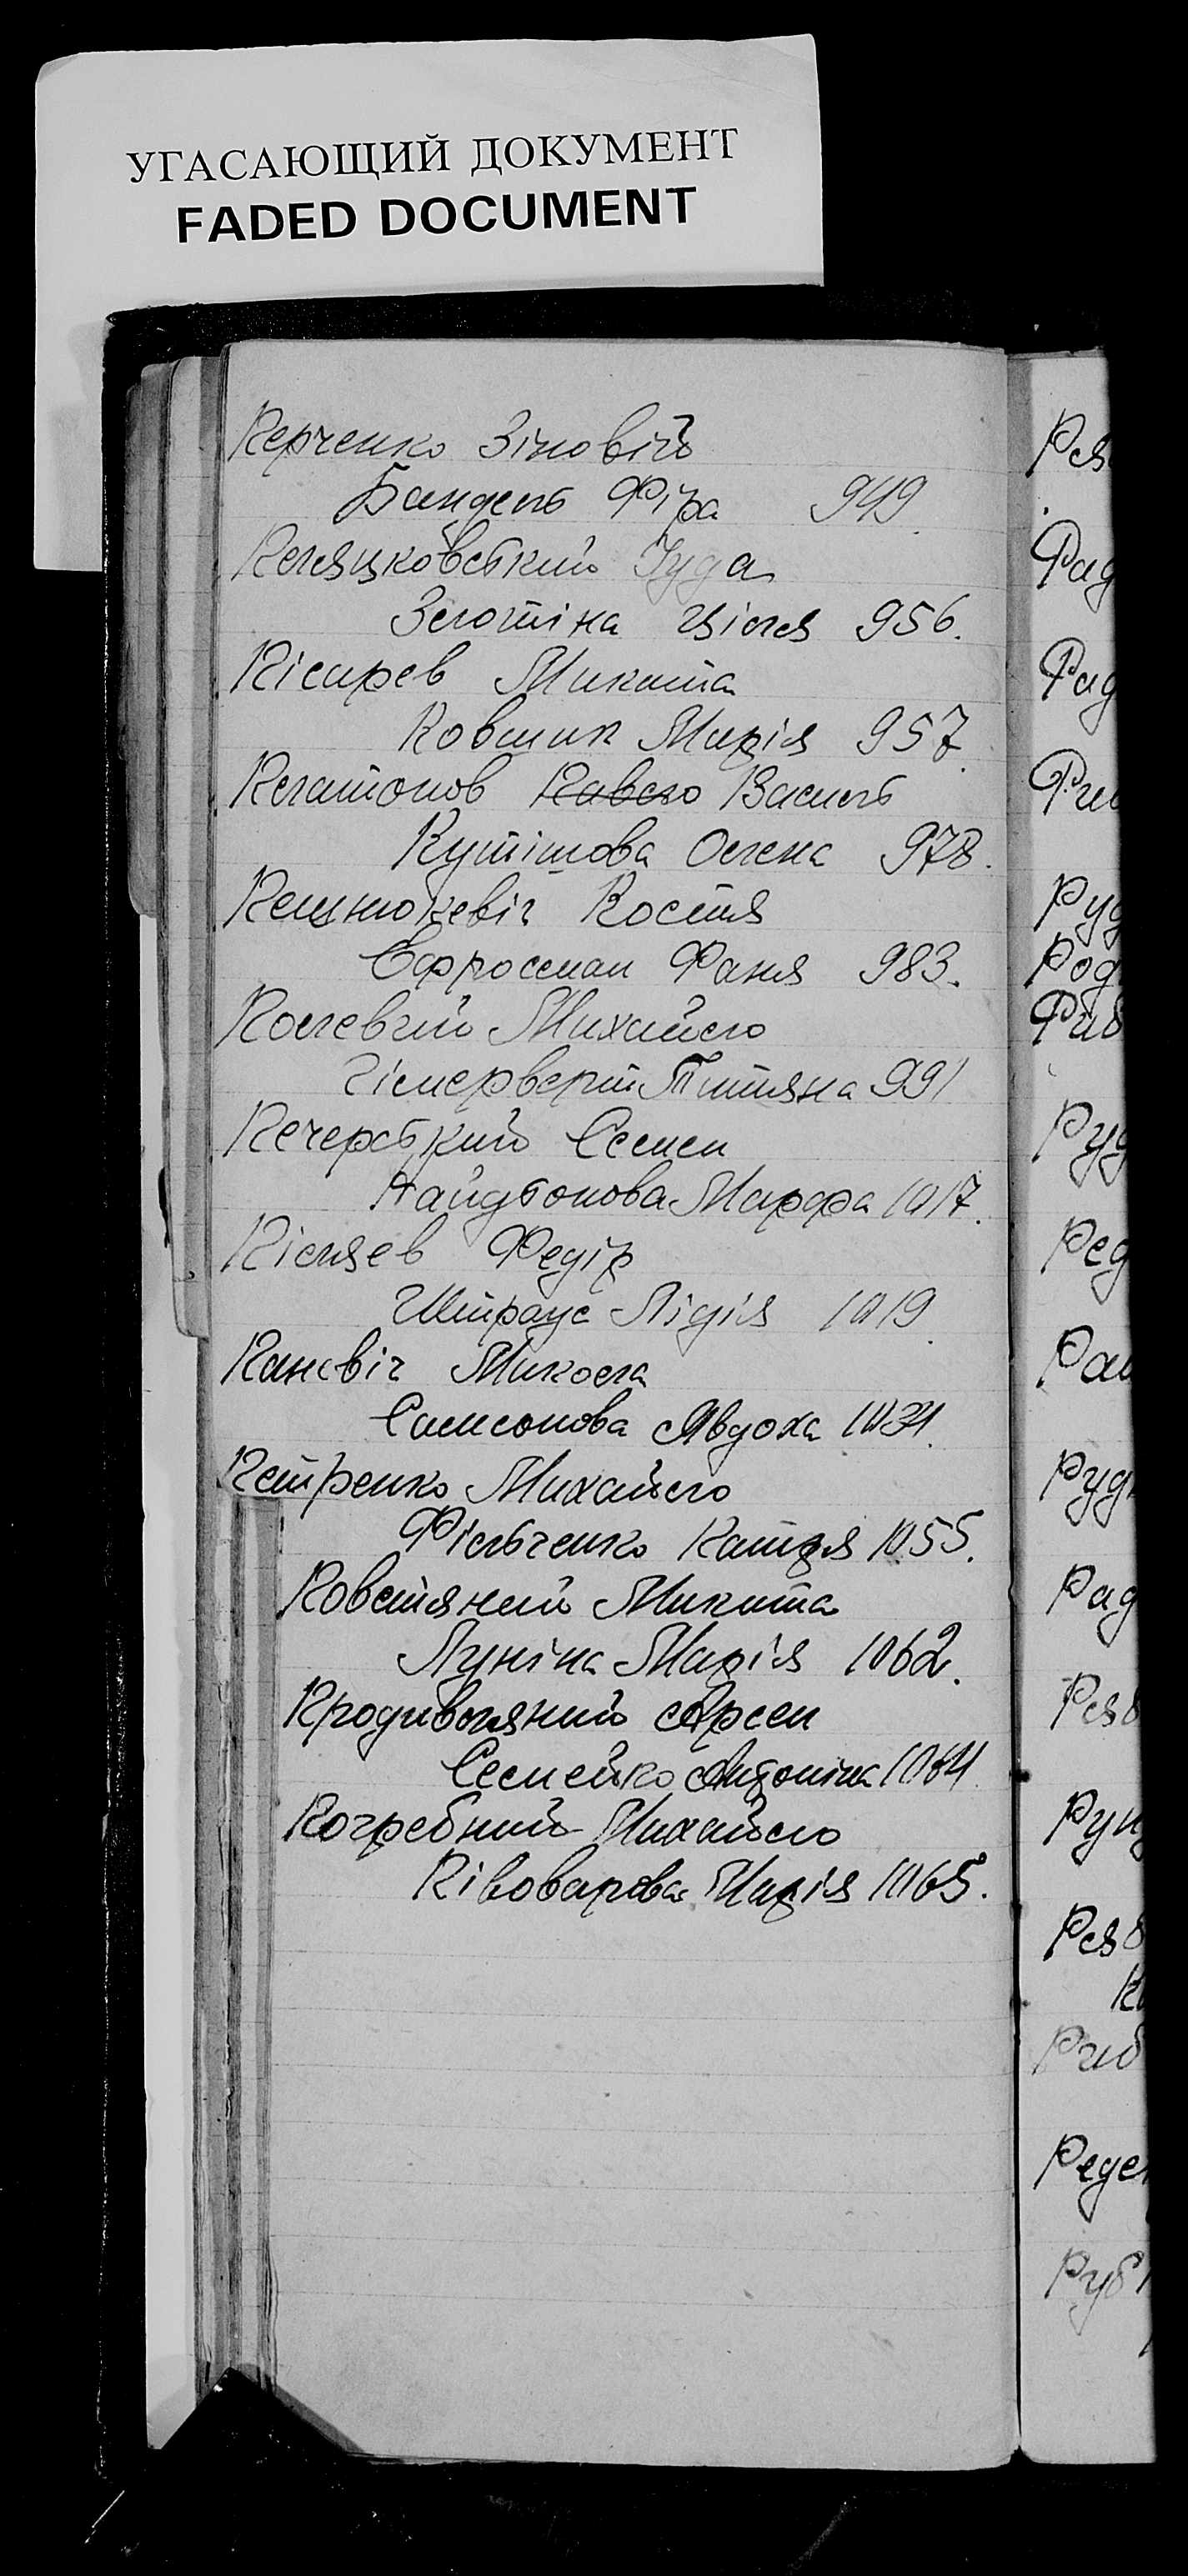 УГАСАЮЩИЙ ДОКУМЕНТ
FADED DOCUMENT
Перченко Зіновій
Бандель Фіра 949
Пеляцковський Іуда
Золотіна Ціля 956.
Пісарев Микита
Ковшик Марія 957.
Платонов Павло Василь
Кутішова Олена 978.
Костя
Фаня 983.
Полевчий Михайло
Титяна 991
Печерський Семен
Найдьонова Марфа 1017.
Післяєв Федір
Штраус Лідія 1019.
Паневіч Микола
Самсонова Явдоха 1034.
Петренко Михайло
Фільченко Катря 1055.
Повстяний Микита
Луніна Марія 1062.
Продивляний Арсен
Семейко Антоніна 1064
Погребний Михайло
Півоварова Марія 1065.